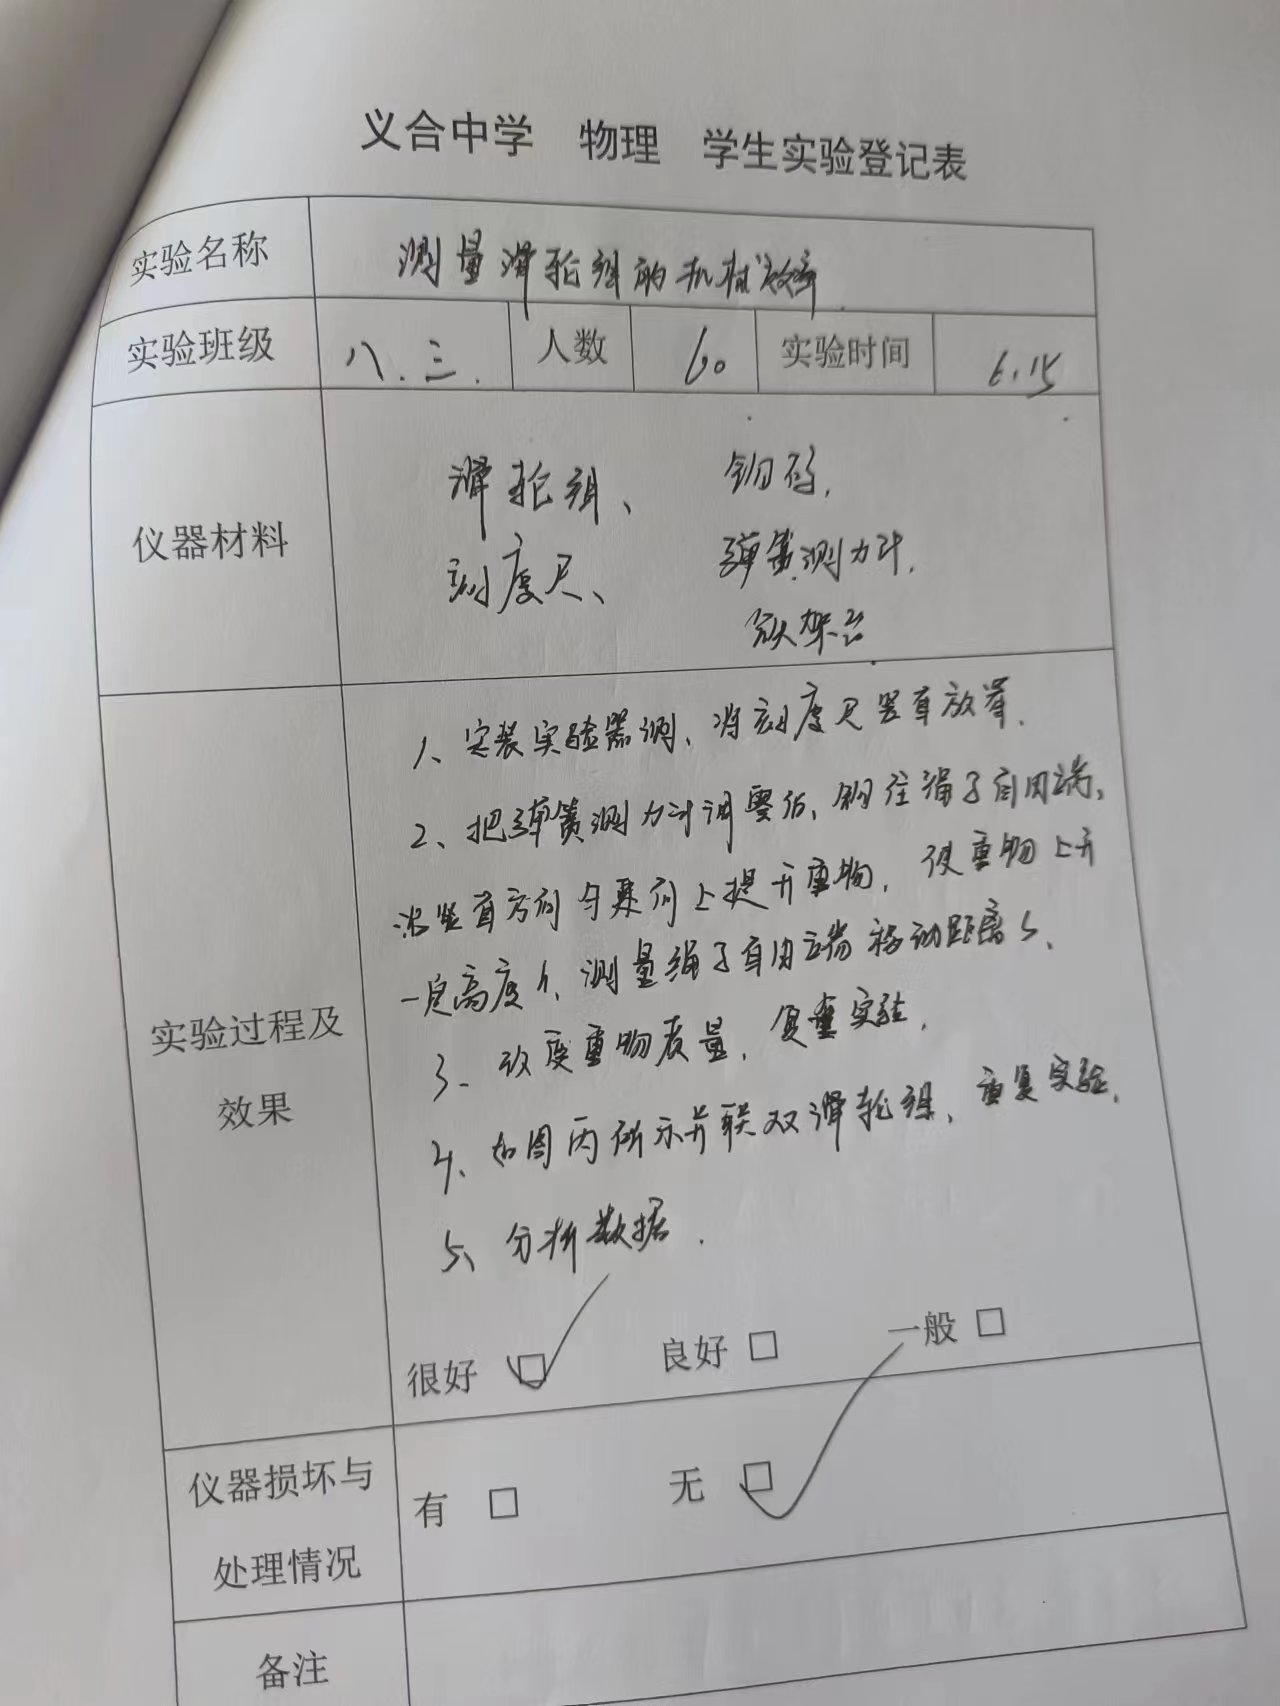 义合中学 物理 学生实验登记表
实验名称 测量滑轮组的机械效率
实验班级 八.三. 人数 60 实验时间 6.15
仪器材料
滑轮组、 钩码,
刻度尺、 弹簧测力计,
铁架台
实验过程及
效果
1、安装实验器测、将刻度尺竖直放置.
2、把弹簧测力计调零后,钩住绳子自由端、
沿竖直方向匀速向上提升重物,使重物上升
一定高度h、测量绳子自由端移动距离s、
3、改变重物质量,复重实验,
4、如图丙所示并联双滑轮组、重复实验,
5、分析数据.
很好 ☑ 良好 □ 一般 □
仪器损坏与
处理情况
有 □ 无 ☑
备注